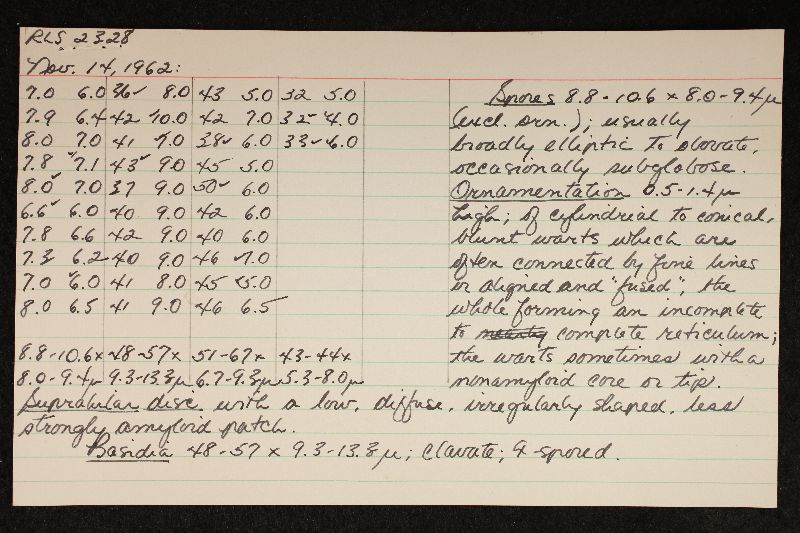 RLS 2328
Nov. 14, 1962:
7.0 6.0 36 8.0 43 5.0 32 5.0
7.9 6.4 42 10.0 42 7.0 32 4.0
8.0 7.0 41 9.0 38 6.0 33 6.0
7.8 7.1 43 9.0 45 5.0
8.0 7.0 37 9.0 50 6.0
6.6 6.0 40 9.0 42 6.0
7.8 6.6 42 9.0 40 6.0
7.3 6.2 40 9.0 46 7.0
7.0 6.0 41 8.0 45 5.0
8.0 6.5 41 9.0 46 6.5
8.8-10.6x 48-57x 51-67x 43-44x
8.0-9.4µ 9.3-13.3µ 6.7-9.3µ 5.3-8.0µ
Spores 8.8-10.6 x 8.0-9.4µ
(excl. orn.); usually
broadly elliptic to obovate,
occasionally subglobose.
Ornamentation 0.5-1.4µ
high; of cylindrial to conical,
blunt warts which are
often connected by fine lines
or aligned and "fused"; the
whole forming an incomplete
to complete reticulum;
the warts sometimes with a
nonamyloid core or tip.
Suprahilar disc with a low, diffuse, irregularly shaped, less
strongly amyloid patch.
Basidia 48-57 x 9.3-13.3µ; clavate; 4-spored.